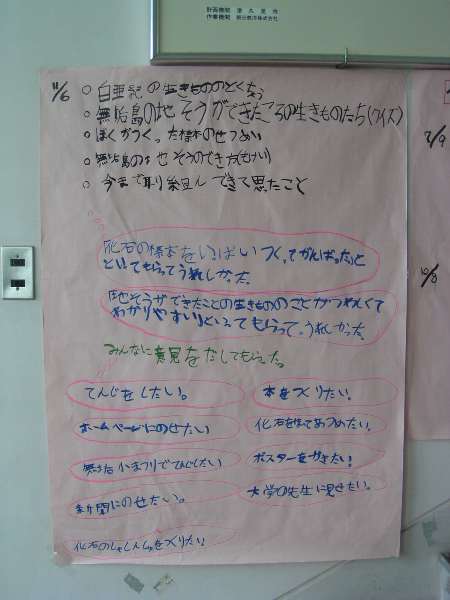 計画機関 喜久見市
作業機関 朝日航洋株式会社
11/6
○ 白亜紀の生きもののとくちょう
○ 無垢島の地そうができたころの生きものたち(クイズ)
○ ぼくがつくった標本のせつめい
○ 無垢島の地そうのでき方(もけい)
○ 今まで取り組んできて思たこと
化石の標本をいっぱいつくってがんばったと
いってもらってうれしかった。
地そうができたころの生きもののことがくわしくて
わかりやすいといってもらって、うれしかった。
みんなに意見をだしてもらった。
てんじをしたい。
本をつくりたい。
ホームページにのせたい
化石をもってあつめたい。
無垢小まつりでてんじしたい
ポスターをかきたい!
新聞にのせたい。
大学の先生に見せたい。
化石のしゃしんしゅうをつくりたい